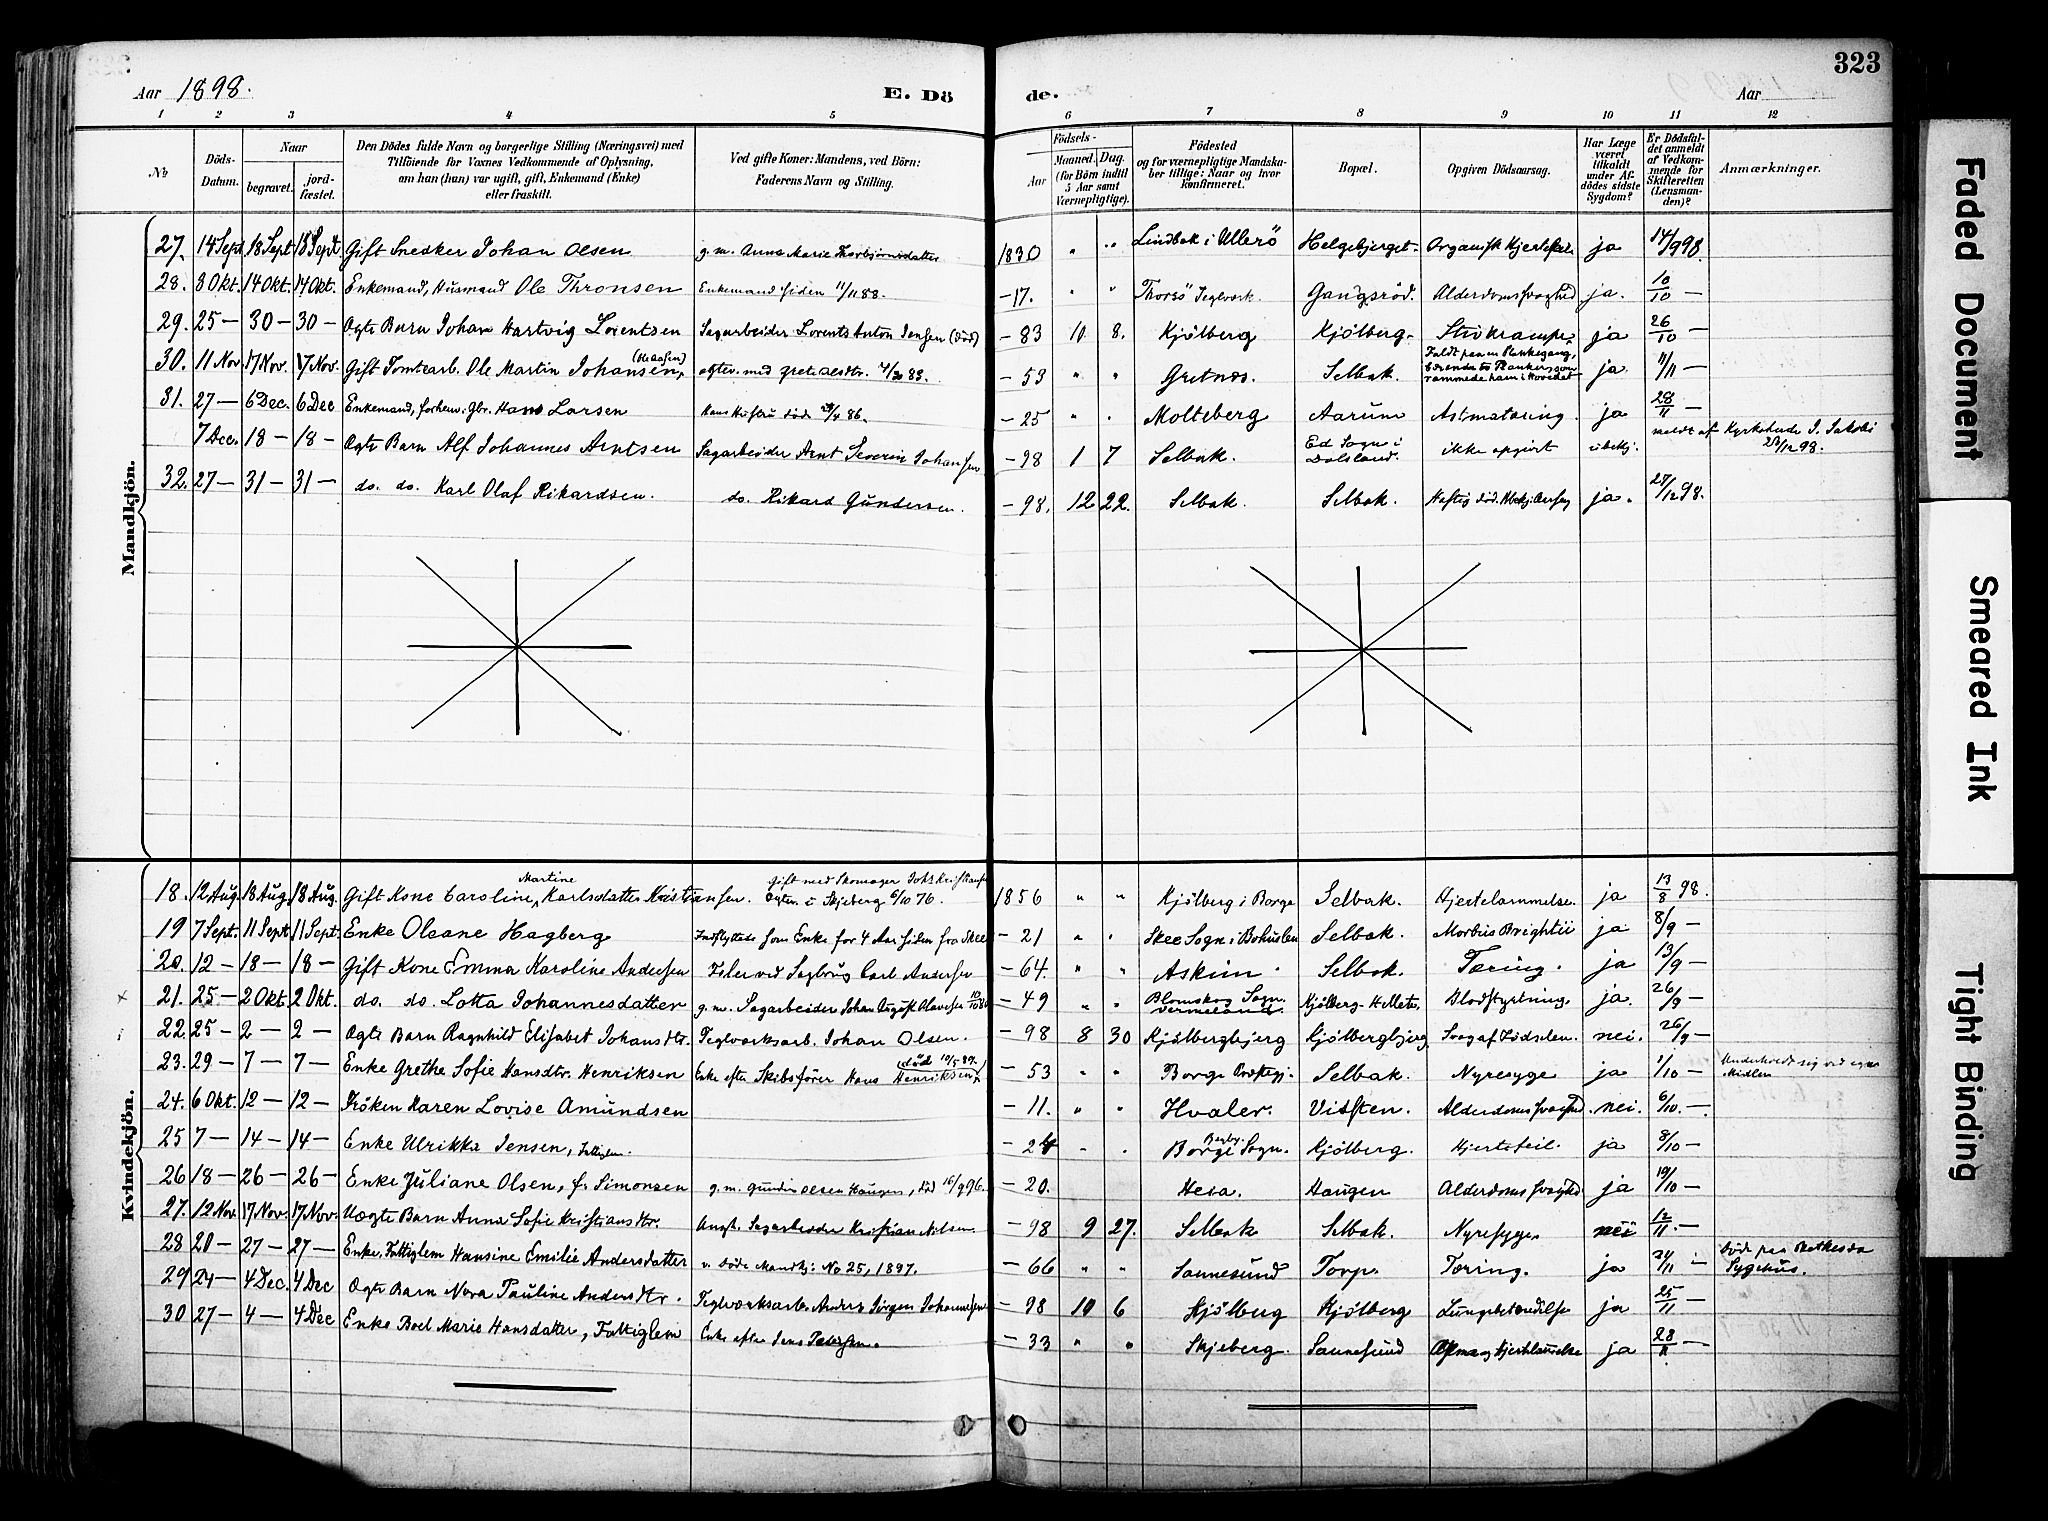 323
Aar 1898.
E. Dö
de.
Aar
1 2 3 4 5 6 7 8 9 10 11 12
No
Döds-Datum.
Naar
begravet.
jordfæstet.
Den Dödes fulde Navn og borgerlige Stilling (Næringsvei) med
Tilföiende for Voxnes Vedkommende af Oplysning,
om han (hun) var ugift, gift, Enkemand (Enke)
eller fraskilt.
Ved gifte Koner: Mandens, ved Börn:
Faderens Navn og Stilling.
Födsels-
Aar
Maaned. Dag.
(for Börn indtil
5 Aar samt
Værnepligtige).
Födested
og for værnepligtige Mandska-
ber tillige: Naar og hvor
konfirmeret.
Bopæl.
Opgiven Dödsaarsag.
Har Læge
været
tilkaldt
under Af-
dödes sidste
Sygdom?
Er Dödsfal-
det anmeldt
af Vedkom-
mende for
Skifteretten
(Lensman-
den)?
Anmærkninger.
Mandkjön.
27. 14 Sept 18 Sept 18 Sept. Gift Snedker Johan Olsen g. m. Anna Marie Thorbjørnsdatter 1830 " " Lindbak i Ullerö Helgebjerget. Organisk Hjertefeil ja 14/9 98.
28. 3 Okt. 14 Okt. 14 Okt. Enkemand, Husmand Ole Thronsen Enkemand siden 11/11 88. -17. " " Thorsö Teglværk. Gangsröd. Alderdomssvaghed ja. 10/10 —
29. 25 — 30 — 30 — Ægte Barn Johan Hartvig Lorentsen Sagarbeider Lorents Anton Jensen (död) -83 10 8. Kjölberg Kjölberg. Stivkrampe. ja 26/10 —
30. 11 Nov 17 Nov. 17 Nov. Gift Tomtearb. Ole Martin Johansen, -53 " " Gretnes. Selbak. Faldt paa en Plankegang, bærende to Planker, som rammede ham i Hovedet ja 11/11 —
31. 27 — 6 Dec. 6 Dec Enkemand, forhenv. Gbr. Hans Larsen hans Hustru döde -25 " " Molteberg Aarum Astmatæring. ja 28/11 —
7 Dec. 18 — 18 — Ægte Barn Alf Johannes Arntsen Sagarbeider Arnt Severin Johansen -98 1 7 Selbak. Ed Sogn i Dalsland. ikke opgivet ubekj. meldt af Kyrkoherde J. 28/12 98.
32. 27 — 31 — 31 — do. do. Karl Olaf Rikardsen. do. Rikard Gundersen. -98. 12 22. Selbak. Selbak. ja. 28/12 98.
Kvindekjön.
18. 12 Aug. 18 Aug. 18 Aug. Gift Kone Caroline Martine Karlsdatter Kristiansen. Gift med Skomager Ægtev. i Skjeberg 6/10 76. 1856 " " Kjölberg i Borge Selbak. Hjertelammelse. ja 13/8 98.
19 7 Sept. 11 Sept 11 Sept. Enke Oleane Hagberg Indflyttede som Enke for 4 Aar siden fra Skee -21 " " Skee Sogn i Bohuslen Selbak. Morbus Brightii ja 8/9 —
20. 12 — 18 — 18 — Gift Kone Emma Karoline Andersen Filer ved Sagbrug Carl Andersen -64. " " Askim. Selbak. Tæring. ja 13/9 —
21. 25 — 2 Okt. 2 Okt. do. do. Lotta Johannesdatter g. m. Sagarbeider Johan August Olavesen -49 " " Blomskog Sogn. Vermeland. Kjölberg- Blodstyrtning. ja. 26/9 —
22. 25 — 2 — 2 — Ægte Barn Ragnhild Elisabet Johansdtr. Teglværksarb. Johan Olsen. -98 8 30 Kjölbergbjerg Kjölbergbjerg Svag af Födselen. nei. 26/9 —
23. 29 — 7 — 7 — Enke Grethe Sofie Hansdtr. Henriksen Enke efter Skibsförer Hans Henriksen -53 " " Borge Selbak. Nyresyge ja 1/10 — Underholdt sig ved egne Midler
24. 6 Okt. 12 — 12 — Fröken Karen Lovise Amundsen -11. " " Hvaler. Vidsten. Alderdomssvaghed. nei. 6/10. —
25 7 — 14 — 14 — Enke Ulrikka Jensen, Fattiglem. -24 " " Borge Sogn. Kjölberg. Hjertefeil. ja 8/10 —
26 18 — 26 — 26 — Enke Juliane Olsen, f. Simonsen g. m. Gunder Olsen Haugen, död 16/9 96. -20. Heia. Haugen Alderdomssvaghed ja 19/10 —
27. 12 Nov. 17 Nov. 17 Nov. Uægte Barn Anna Sofie Kristiansdtr. Ungk. Sagarbeider Kristian Nilsen. -98 9 27. Selbak Selbak. Nyresyge. nei 12/11. —
28 20 — 27 — 27 — Enke, Fattiglem Hansine Emilie Andersdatter v. döde Mandkj: No 25, 1897. -66 " " Sannesund Torp. Tæring. ja 24/11 — Död paa Sygehus.
29 24 — 4 Dec. 4 Dec Ægte Barn Nora Pauline Andersdtr. Teglværksarb. Anders Jörgen Johannesen -98 10 6 Kjölberg Kjölberg Lungebetændelse ja 25/11 —
30 27 — 4 — 4 Dec Enke Boel Marie Hansdatter, Fattiglem Enke efter Jens Petersen. -33 " " Skjeberg. Sannesund ja 28/11 —
Faded Document
Smeared Ink
Tight Binding